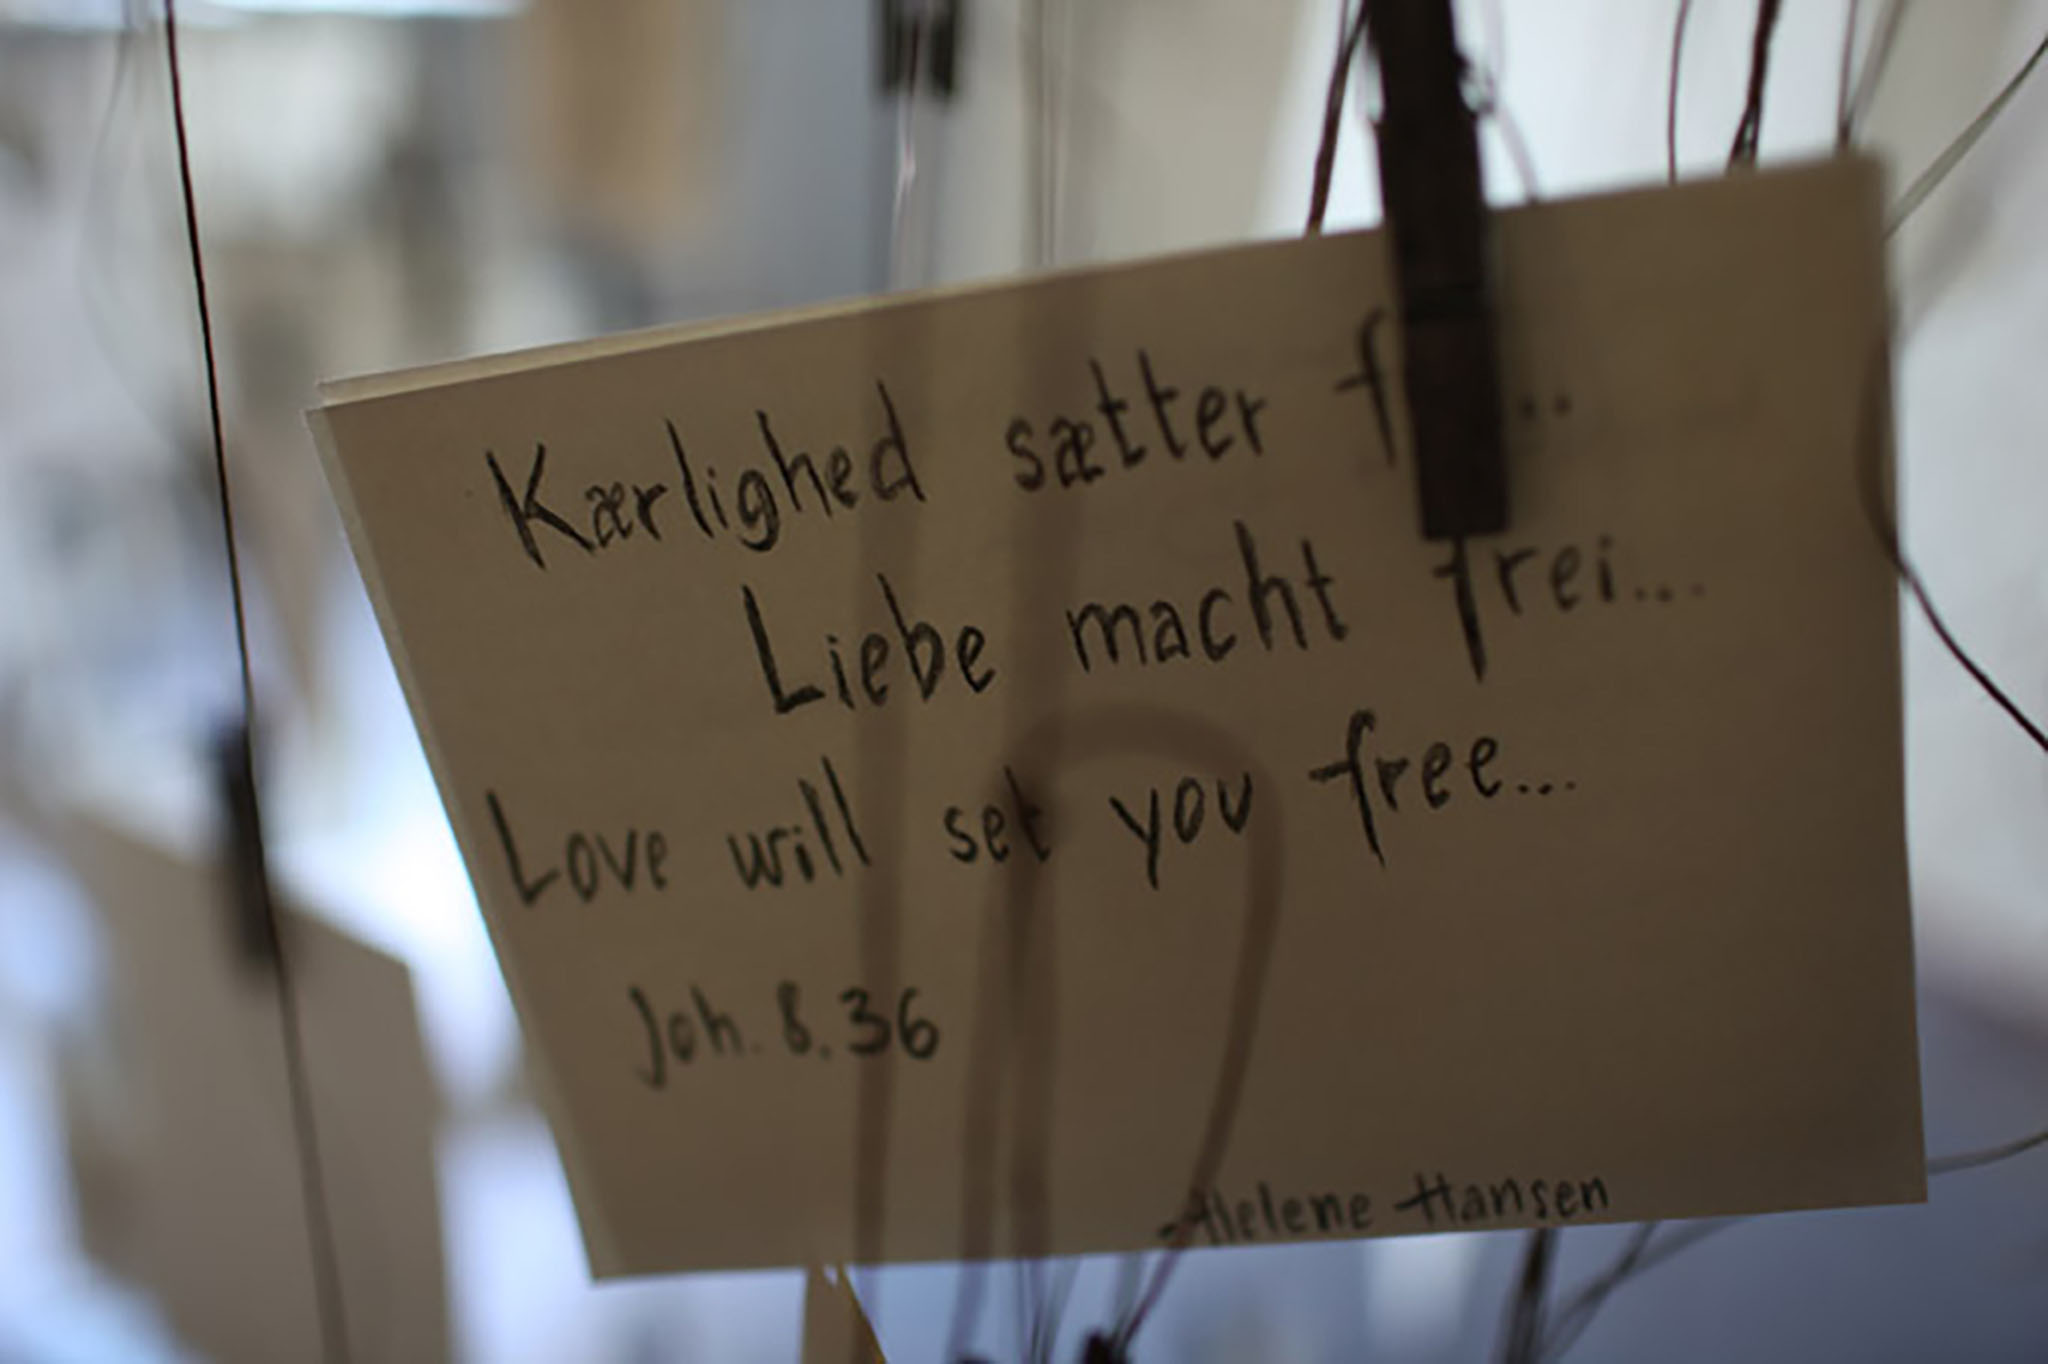 Kærlighed sætter
Liebe macht frei...
Love will set you free...
Joh. 8.36
-Helene Hansen